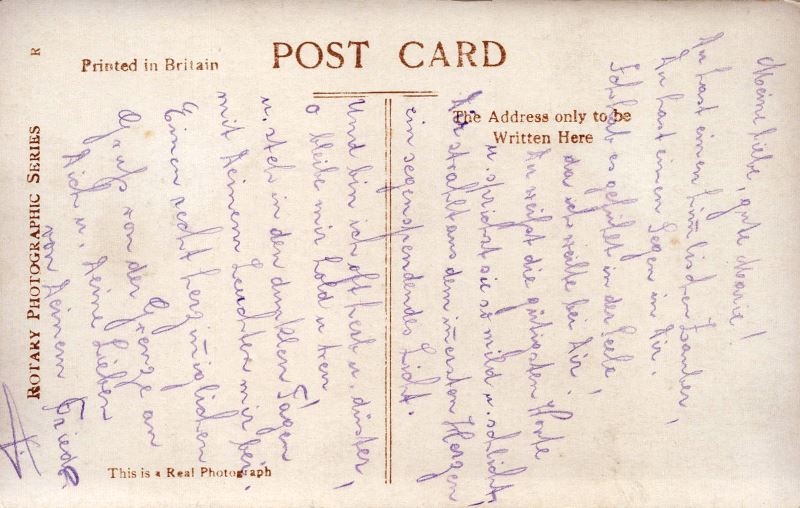 POST CARD
Printed in Britain
R
ROTARY PHOTOGRAPHIC SERIES
The Address only to be
Written Here
This is a Real Photograph
Meine liebe, gute Marie!
Du hast einen him̄lischen Zauber,
Du hast einen Segen in Dir,
Ich hab es gefühlt in der Seele
da ich weilte bei Dir!
Du weißt die gütigsten Worte
u. sprichst sie so mild u. schlicht,
Dir strahlt aus dem in̄ersten Herzen
ein segenspendendes Licht.
Und bin ich oft herb u. düster,
o bleibe mir hold u treu
u. steh in den dunklen Tagen
mit Deinem Leuchten mir bei.
Einen recht herzin̄iglichen
Gruß von der Grenze an
Dich u. Deine Lieben
von Deinem